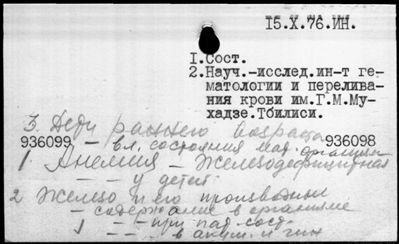 15.X.76.ИН.
1.Сост.
2.Науч.-исслед.ин-т ге-
матологии и перелива-
ния крови им.Г.М.Му-
хадзе.Тбилиси.
3. Дети раннего возраста
936099 - вл. состояния мат. организма 936098
1. Анемия - Железодефицитная
- " - у детей
2 Железо и его производные
- содержание в организме
" - при пат. сост.
" - в акуш. и гин